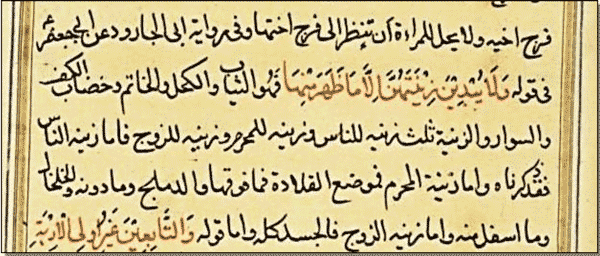 فرج اخيه ولا يحل للمراءة ان تنظر الى فرج اختها وفى رواية ابى الجارود عن ابيجعفر ع
فى قوله وَلَا يُبْدِيْنَ زِيْنَتَهُنَّ اِلَّا مَا ظَهَرَ مِنْهَا فهو الثياب والكحل والخاتم وخضاب الكف
والسوار والزنية ثلث زنيه للناس وزنيه للمحرم وزنيه للزوج فاما زينه الناس
فقد ذكرناه واما زنية المحرم فموضع القلادة فما فوقها والدملج وما دونه والخلخال
وما اسفل منه واما زنيه الزوج فالجسد كله واما قوله وَالتَّابِعِيْنَ غَيْرِ اُولِى الْاَرْبَةِ